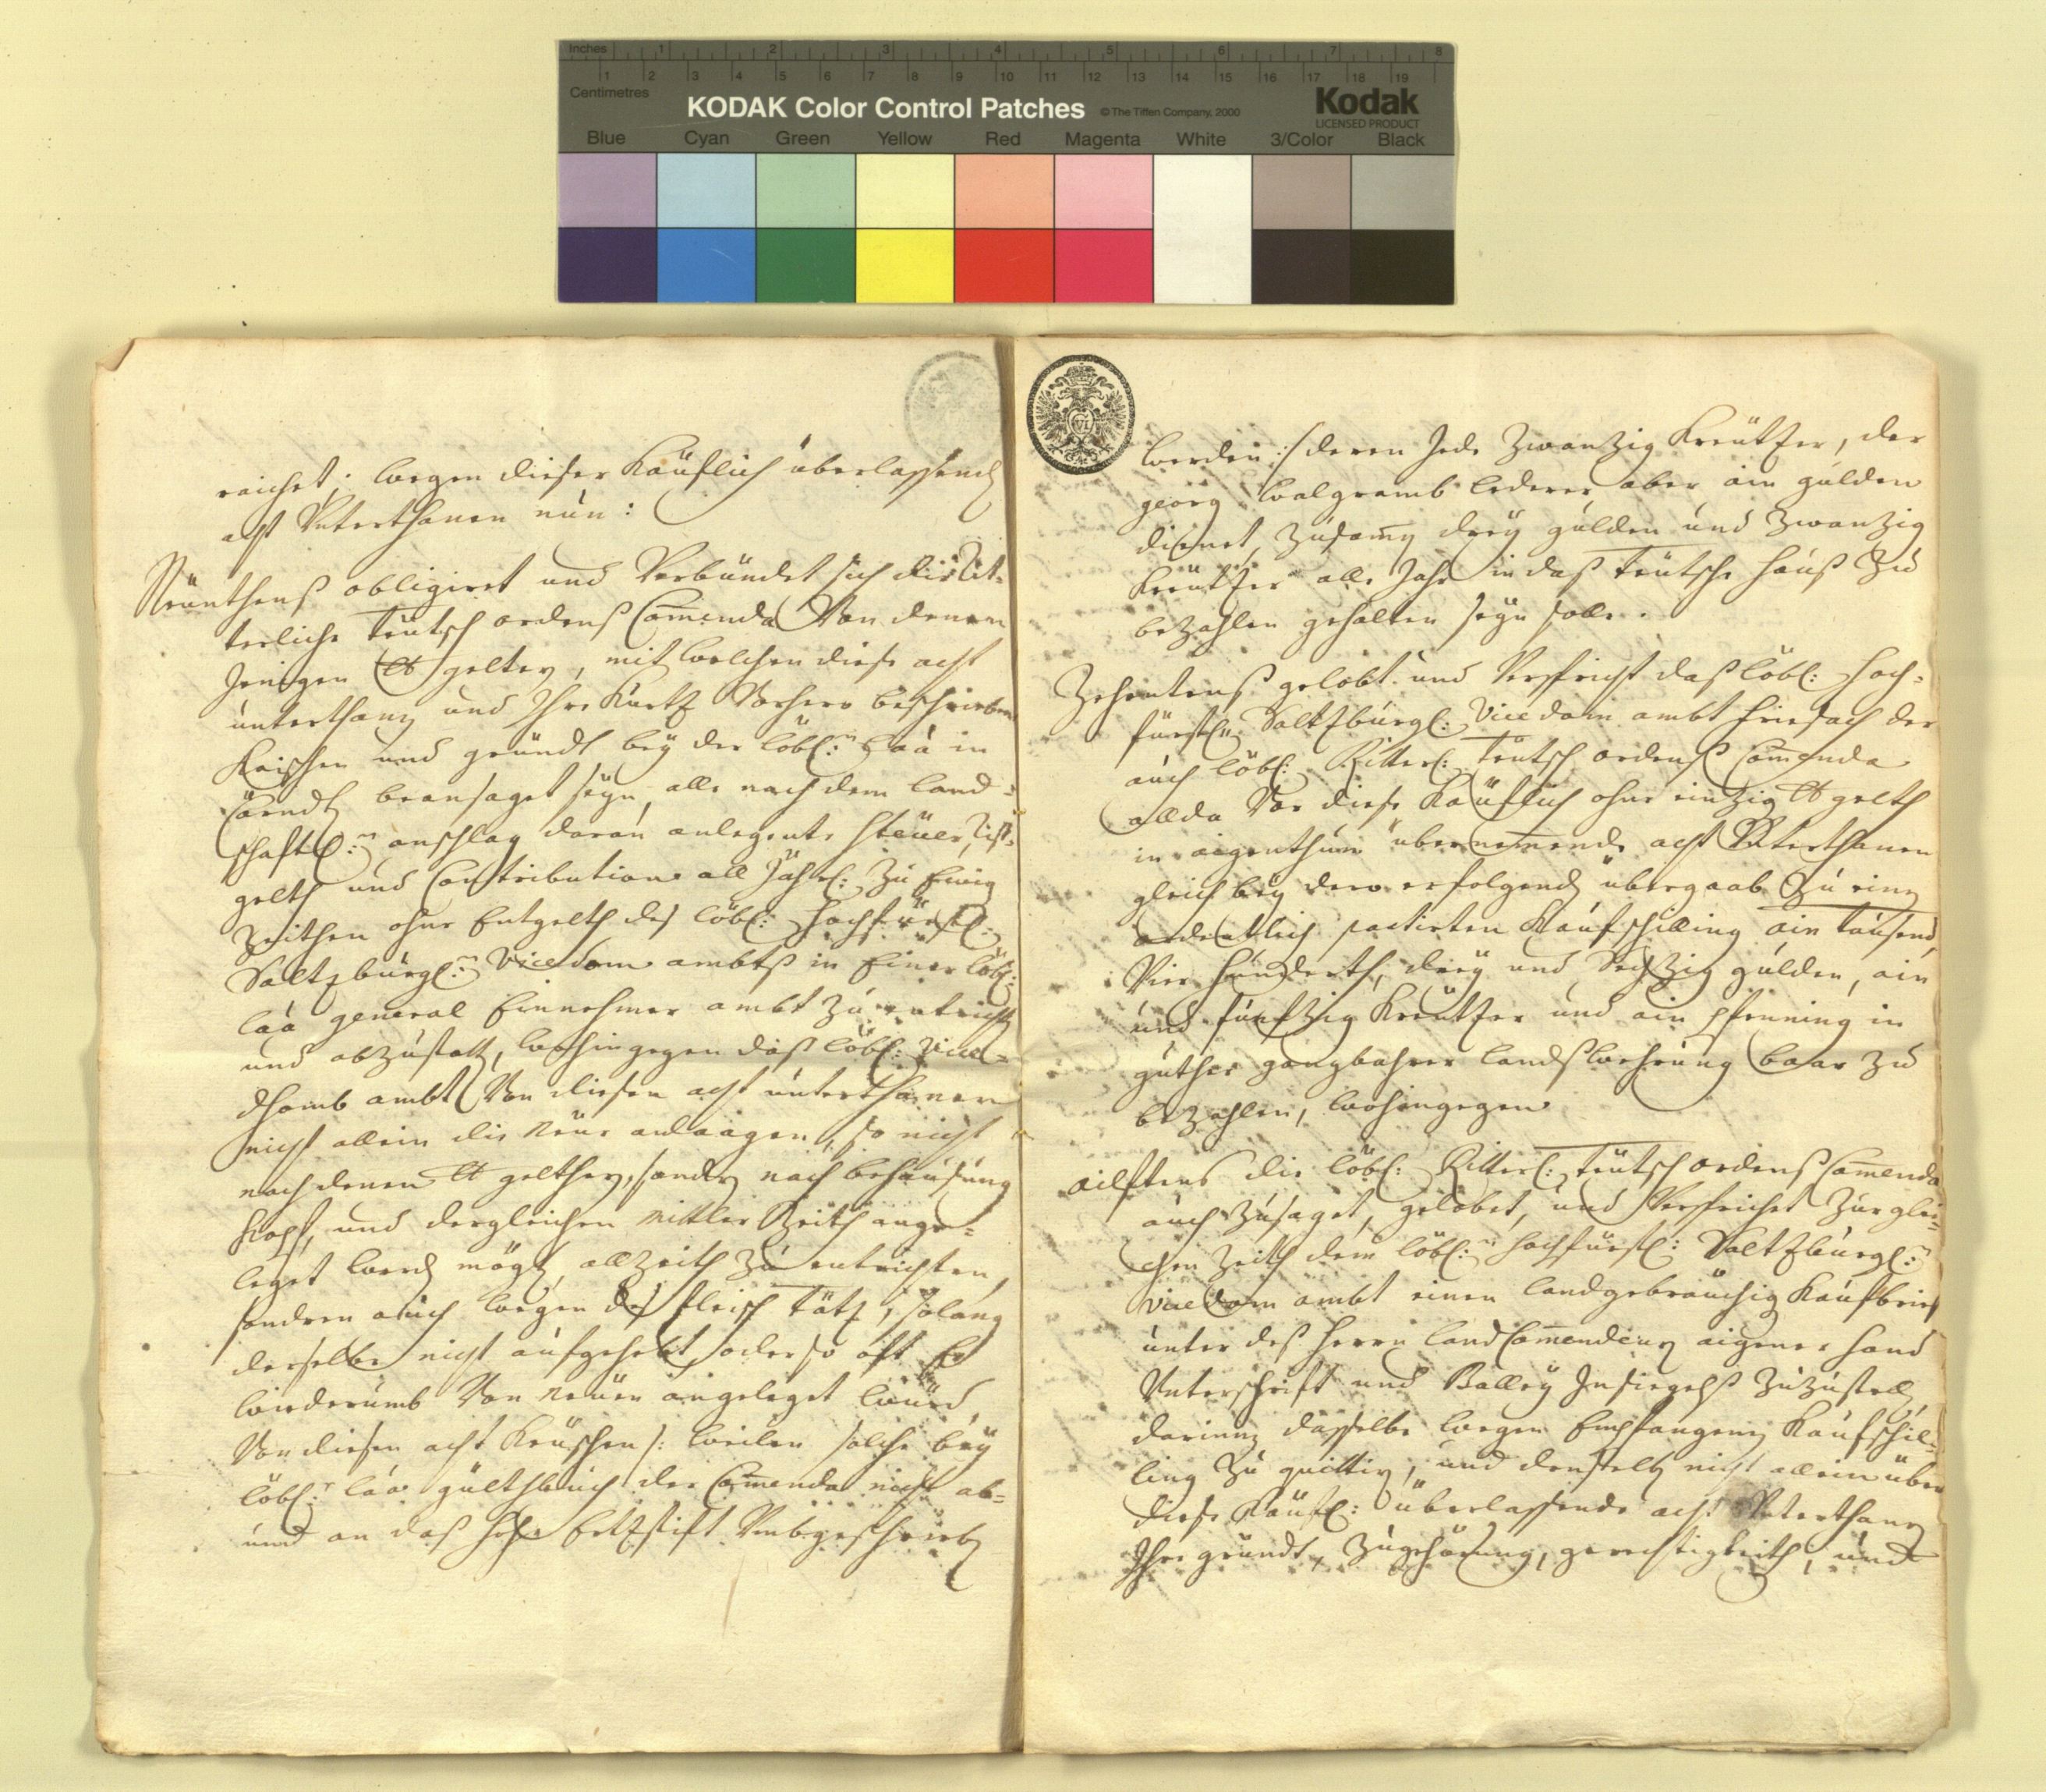 Inches 1 2 3 4 5 6 7 8
1 2 3 4 5 6 7 8 9 10 11 12 13 14 15 16 17 18 19
Centimetres
KODAK Color Control Patches © The Tiffen Company, 2000 Kodak
LICENSED PRODUCT
Blue Cyan Green Yellow Red Magenta White 3/Color Black
raichet; wegen dieser Käüflich überlassend
acht Unterthanen nün:
Neünthenß obligiret und Verbündet sich die Rit-
terliche Teütsch ordenß Com̄enda Von denen
Jenigen gelter, mit welchen diese acht
unterthan und Ihre Kurtz Vorhero beschriebene
Keischen und gründt bey der löbl: Laa in
Cärndt beansaget seyn, alle nach dem land-
schafftl: anschlag daran anlegente Steüer, Rist-
gelth und Contribution all Jährl: zu Ewig
Zeithen ohne Entgelth des löbl: Hochfürstl:
Saltzburgl: Vicedom ambtß in Einer löbl:
Laa general Einnehmer ambt zu entrichten
und abzustatt, wohingegen daß löbl: Vice-
dhomb ambt Von diesen acht unterthanen
nicht allein die Neüe anlaagen, so nicht
nach denen gelthen, sondern nach behausung
Kopf, und dergleichen mitler Zeith ange-
leget werd mögt, allzeith zu entrichten,
sondern auch wegen des fleisch tätz, solang
derselbe nicht aufgehebt, oder so oft Er
wiederumb Von Neüen angeleget wurd,
Von diesen acht Keüschen /: weilen solche bey
löbl: Laa gülthbuch der Com̄enda nicht ab-
und an daß hohe Ertzstift Umbgeschrieben
werden :/ deren Jede Zwantzig Kreützer, der
georg Walgramb lederer aber ain gulden
dienet, Zusam̄en drey gulden und Zwantzig
Kreützer alle Jahr in daß teütsche hauß Zu
bezahlen gehalten seyn solle.
Zehentenß gelobt und Verspricht daß löbl: Hoch-
fürstl: Saltzburgl: Vicedom ambt friesach der
auch löbl: Ritterl: Teütsch ordenß Com̄enda
allda Vor diese Käüflich ohne eintzig gelth
in aigenthum übernemende acht Unterthanen
gleich bey dero erfolgend übergaab Zu einen
ordentlich pactirten Kaufschilling ain tausend
Vier hunderth, drey und Sechzig gulden, ain
und fünfzig Kreützer und ain pfenning in
guther gangbahrer landßwehrung baar zu
bezahlen, wohingegen
ailftens die löbl: Ritterl: teütsch ordenß Com̄enda
auch Zusaget, gelobet, und Verspricht Zur glei-
chen Zeith dem löbl: Hochfürstl: Saltzburgl:
Vicedom ambt einen landgebräuchig Kaufbrief
unter deß Herrn land Com̄endeurs aigener Hand
Unterschrift und Balley Insiegelß Zuzustell,
darinn dasselbe wegen Empfangenen Kaufschil-
ling zu quittiren, und denselben nicht allein über
diese Käufl: überlassende acht Unterthanen
Ihre gründt, Zugehörung, gerechtigkeith, und